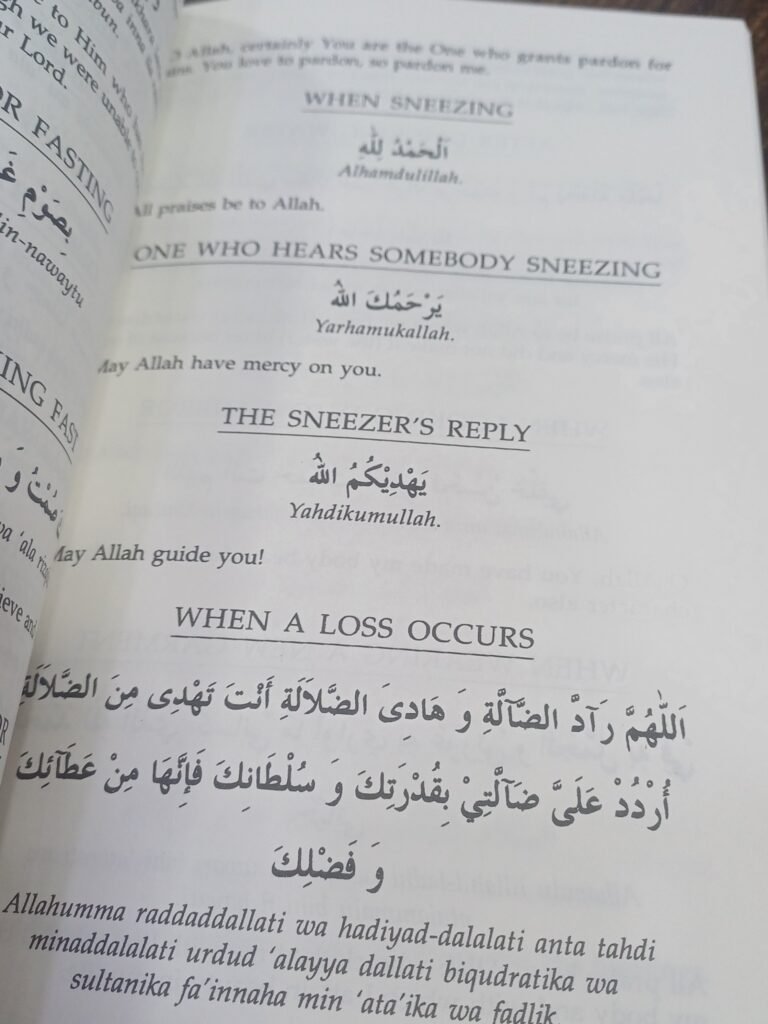 Him who
gh we were unable to
ur Lord.
OR FASTING
بِصَوْمِ
in-nawaytu
KING FAST
wa ‘ala
ieve and
Allah, certainly You are the One who grants pardon for
You love to pardon, so pardon me.
WHEN SNEEZING
اَلْحَمْدُ لِلّٰهِ
Alhamdulillah.
All praises be to Allah.
ONE WHO HEARS SOMEBODY SNEEZING
يَرْحَمُكَ اللّٰهُ
Yarhamukallah.
May Allah have mercy on you.
THE SNEEZER'S REPLY
يَهْدِيْكُمُ اللّٰهُ
Yahdikumullah.
May Allah guide you!
WHEN A LOSS OCCURS
اَللّٰهُمَّ رَآدَّ الضَّآلَّةِ وَ هَادِىَ الضَّلاَلَةِ أَنْتَ تَهْدِى مِنَ الضَّلاَلَةِ
أُرْدُدْ عَلَىَّ ضَآلَّتِيْ بِقُدْرَتِكَ وَ سُلْطَانِكَ فَإِنَّهَا مِنْ عَطَآئِكَ
وَ فَضْلِكَ
Allahumma raddaddallati wa hadiyad-dalalati anta tahdi
minaddalalati urdud ‘alayya dallati biqudratika wa
sultanika fa’innaha min ‘ata’ika wa fadlik